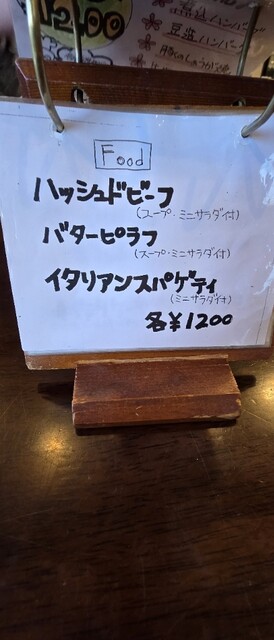 1200
豆腐ハンバーグ
Food
ハッシュドビーフ
(スープ・ミニサラダ付)
バターピラフ
(スープ・ミニサラダ付)
イタリアンスパゲティ
(ミニサラダ付)
各¥1200